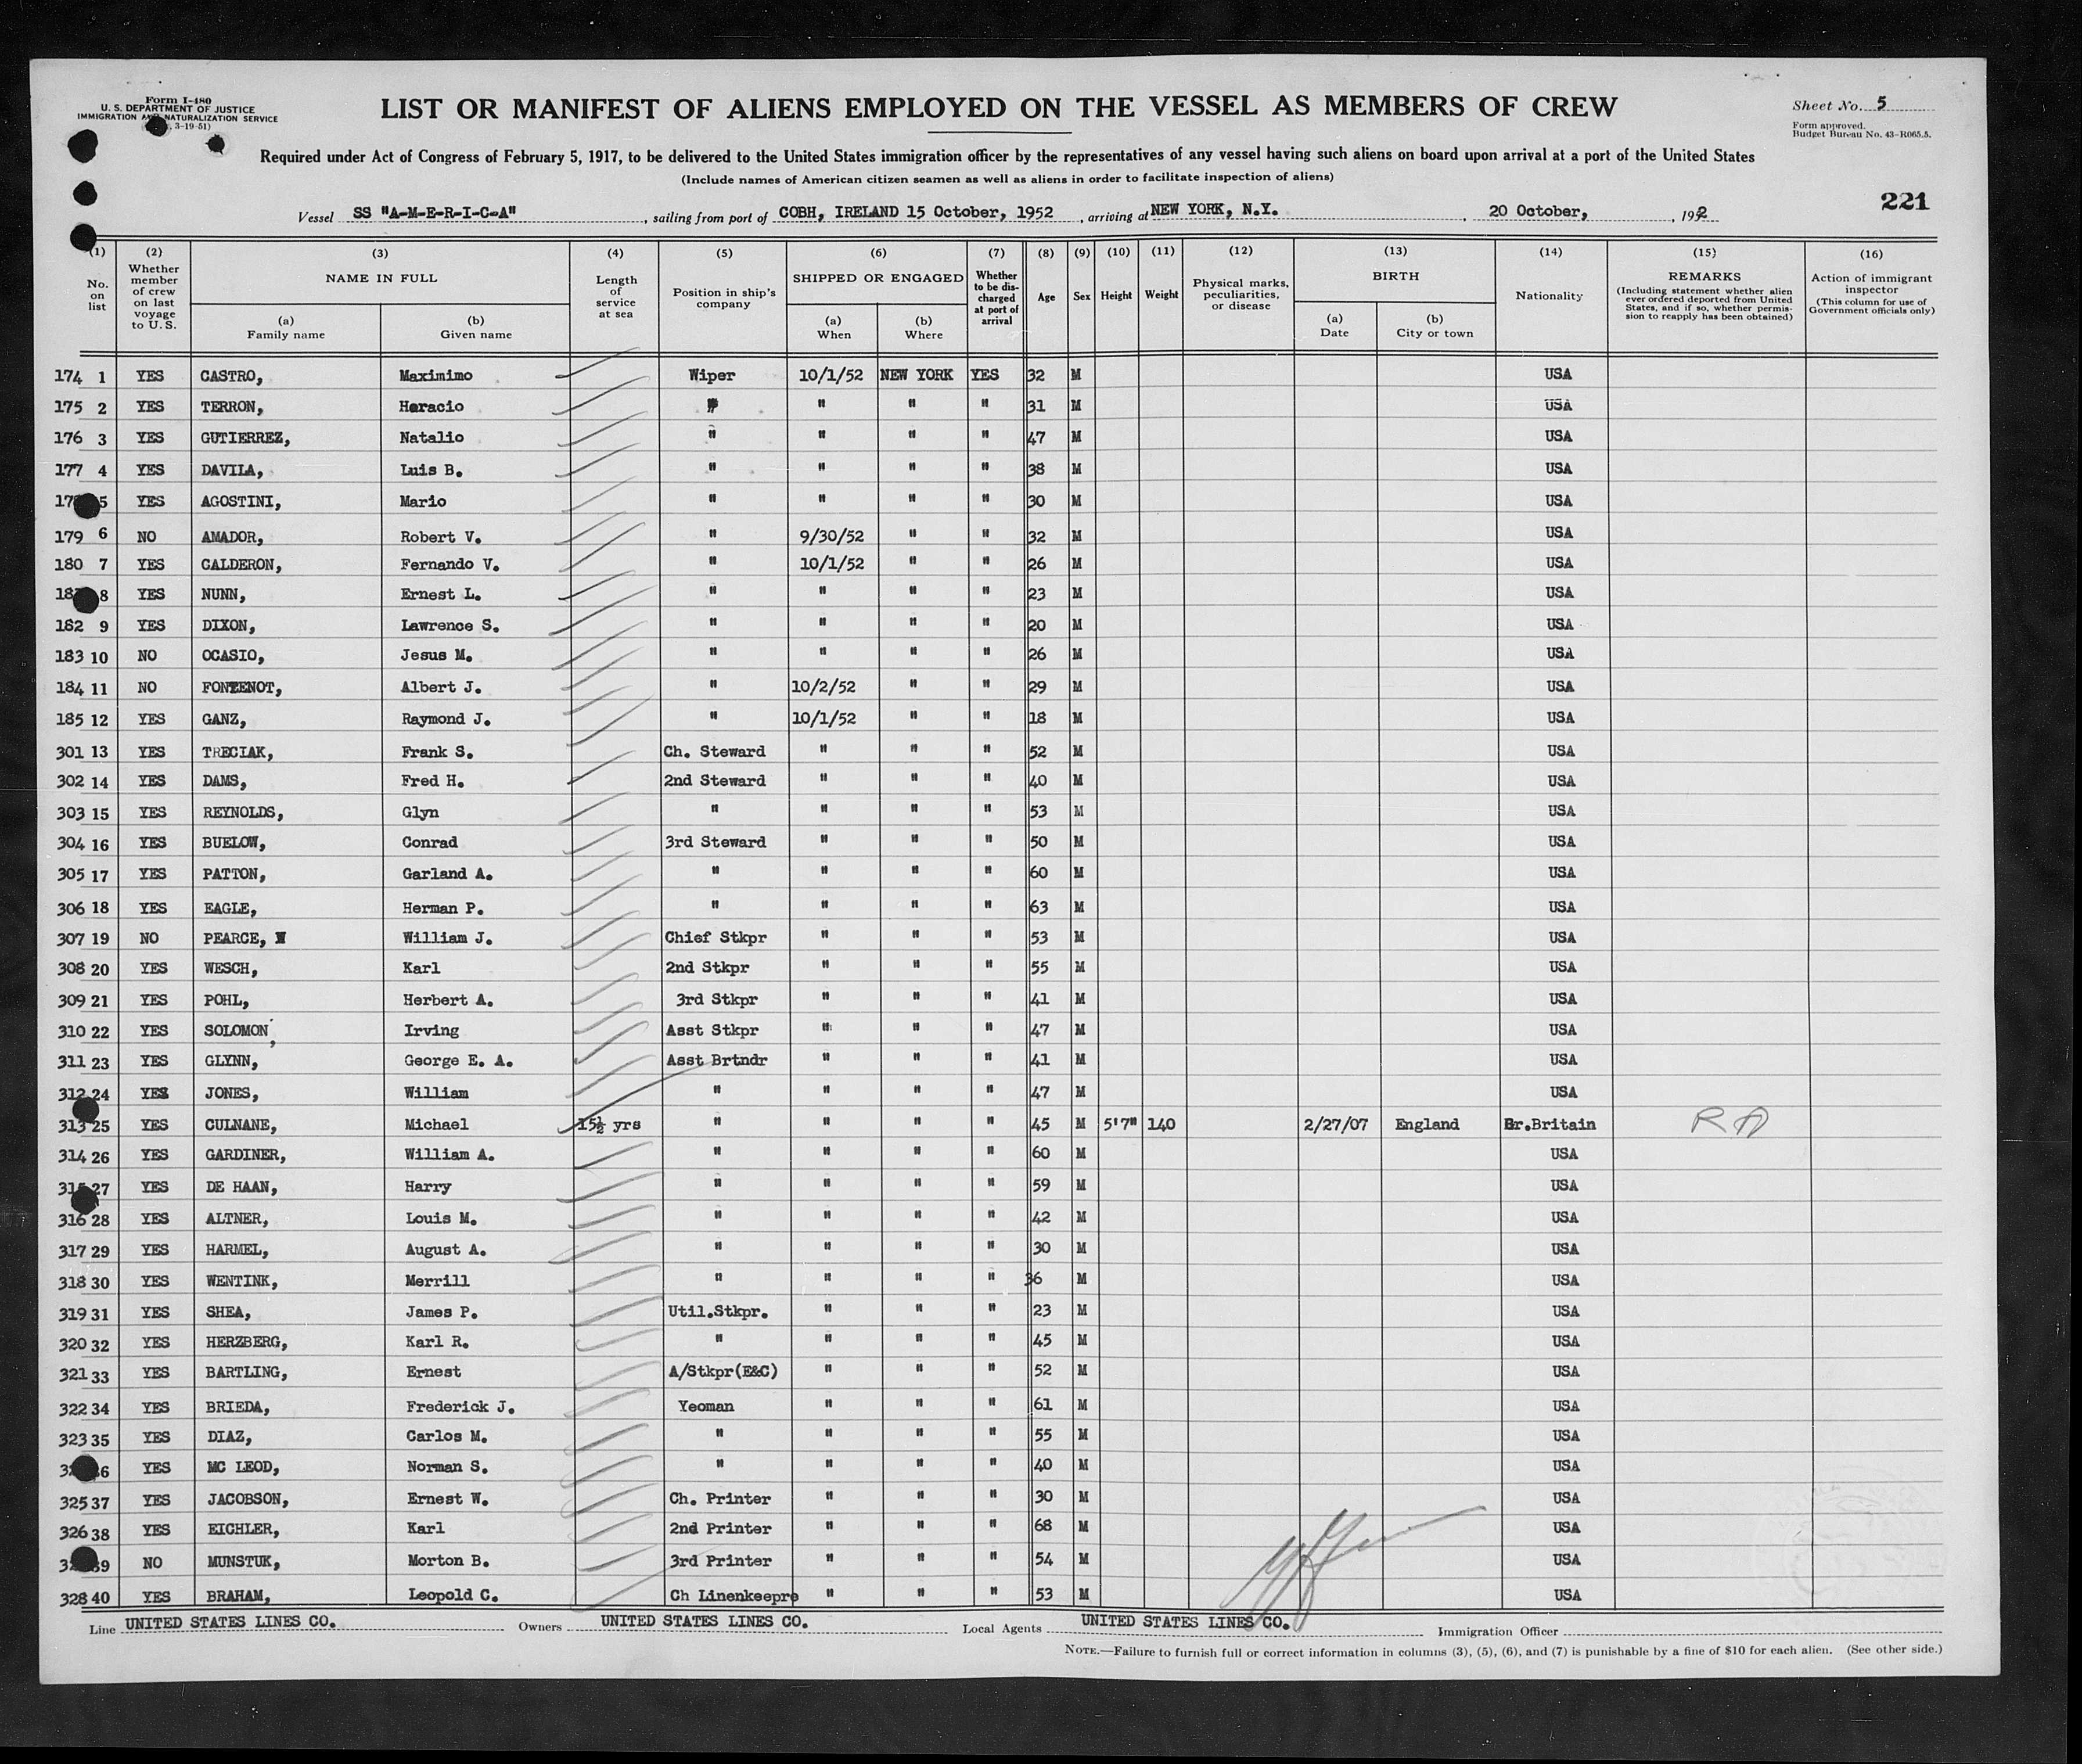 Form I-480
U. S. DEPARTMENT OF JUSTICE
IMMIGRATION AND NATURALIZATION SERVICE
3-19-51)
LIST OR MANIFEST OF ALIENS EMPLOYED ON THE VESSEL AS MEMBERS OF CREW
Sheet No. 5
Form approved.
Budget Bureau No. 43-R065.5.
Required under Act of Congress of February 5, 1917, to be delivered to the United States immigration officer by the representatives of any vessel having such aliens on board upon arrival at a port of the United States
(Include names of American citizen seamen as well as aliens in order to facilitate inspection of aliens)
221
Vessel SS "A-M-E-R-I-C-A", sailing from port of COBH, IRELAND 15 October, 1952, arriving at NEW YORK, N.Y., 20 October, 1952
(1) No. on list (2) Whether member of crew on last voyage to U. S. (3) NAME IN FULL (a) Family name (b) Given name (4) Length of service at sea (5) Position in ship's company (6) SHIPPED OR ENGAGED (a) When (b) Where (7) Whether to be discharged at port of arrival (8) Age (9) Sex (10) Height (11) Weight (12) Physical marks, peculiarities, or disease (13) BIRTH (a) Date (b) City or town (14) Nationality (15) REMARKS (Including statement whether alien ever ordered deported from United States, and if so, whether permission to reapply has been obtained) (16) Action of immigrant inspector (This column for use of Government officials only)
174 1 YES CASTRO, Maximimo Wiper 10/1/52 NEW YORK YES 32 M USA
175 2 YES TERRON, Horacio " " " " 31 M USA
176 3 YES GUTIERREZ, Natalio " " " " 47 M USA
177 4 YES DAVILA, Luis B. " " " " 38 M USA
17 5 YES AGOSTINI, Mario " " " " 30 M USA
179 6 NO AMADOR, Robert V. " 9/30/52 " " 32 M USA
180 7 YES CALDERON, Fernando V. " 10/1/52 " " 26 M USA
18 8 YES NUNN, Ernest L. " " " " 23 M USA
182 9 YES DIXON, Lawrence S. " " " " 20 M USA
183 10 NO OCASIO, Jesus M. " " " " 26 M USA
184 11 NO FONTENOT, Albert J. " 10/2/52 " " 29 M USA
185 12 YES GANZ, Raymond J. " 10/1/52 " " 18 M USA
301 13 YES TRECIAK, Frank S. Ch. Steward " " " 52 M USA
302 14 YES DAMS, Fred H. 2nd Steward " " " 40 M USA
303 15 YES REYNOLDS, Glyn " " " " 53 M USA
304 16 YES BUELOW, Conrad 3rd Steward " " " 50 M USA
305 17 YES PATTON, Garland A. " " " " 60 M USA
306 18 YES EAGLE, Herman P. " " " " 63 M USA
307 19 NO PEARCE, William J. Chief Stkpr " " " 53 M USA
308 20 YES WESCH, Karl 2nd Stkpr " " " 55 M USA
309 21 YES POHL, Herbert A. 3rd Stkpr " " " 41 M USA
310 22 YES SOLOMON, Irving Asst Stkpr " " " 47 M USA
311 23 YES GLYNN, George E. A. Asst Brtndr " " " 41 M USA
312 24 YES JONES, William " " " " 47 M USA
313 25 YES CULNANE, Michael 15½ yrs " " " " 45 M 5'7" 140 2/27/07 England Gr.Britain RA
314 26 YES GARDINER, William A. " " " " 60 M USA
315 27 YES DE HAAN, Harry " " " " 59 M USA
316 28 YES ALTNER, Louis M. " " " " 42 M USA
317 29 YES HARMEL, August A. " " " " 30 M USA
318 30 YES WENTINK, Merrill " " " " 36 M USA
319 31 YES SHEA, James P. Util.Stkpr. " " " 23 M USA
320 32 YES HERZBERG, Karl R. " " " " 45 M USA
321 33 YES BARTLING, Ernest A/Stkpr(E&C) " " " 52 M USA
322 34 YES BRIEDA, Frederick J. Yeoman " " " 61 M USA
323 35 YES DIAZ, Carlos M. " " " " 55 M USA
3 6 YES MC LEOD, Norman S. " " " " 40 M USA
325 37 YES JACOBSON, Ernest W. Ch. Printer " " " 30 M USA
326 38 YES EICHLER, Karl 2nd Printer " " " 68 M USA
3 39 NO MUNSTUK, Morton B. 3rd Printer " " " 54 M USA
328 40 YES BRAHAM, Leopold C. Ch Linenkeepre " " " 53 M USA
Line UNITED STATES LINES CO. Owners UNITED STATES LINES CO. Local Agents UNITED STATES LINES CO. Immigration Officer
NOTE.—Failure to furnish full or correct information in columns (3), (5), (6), and (7) is punishable by a fine of $10 for each alien. (See other side.)